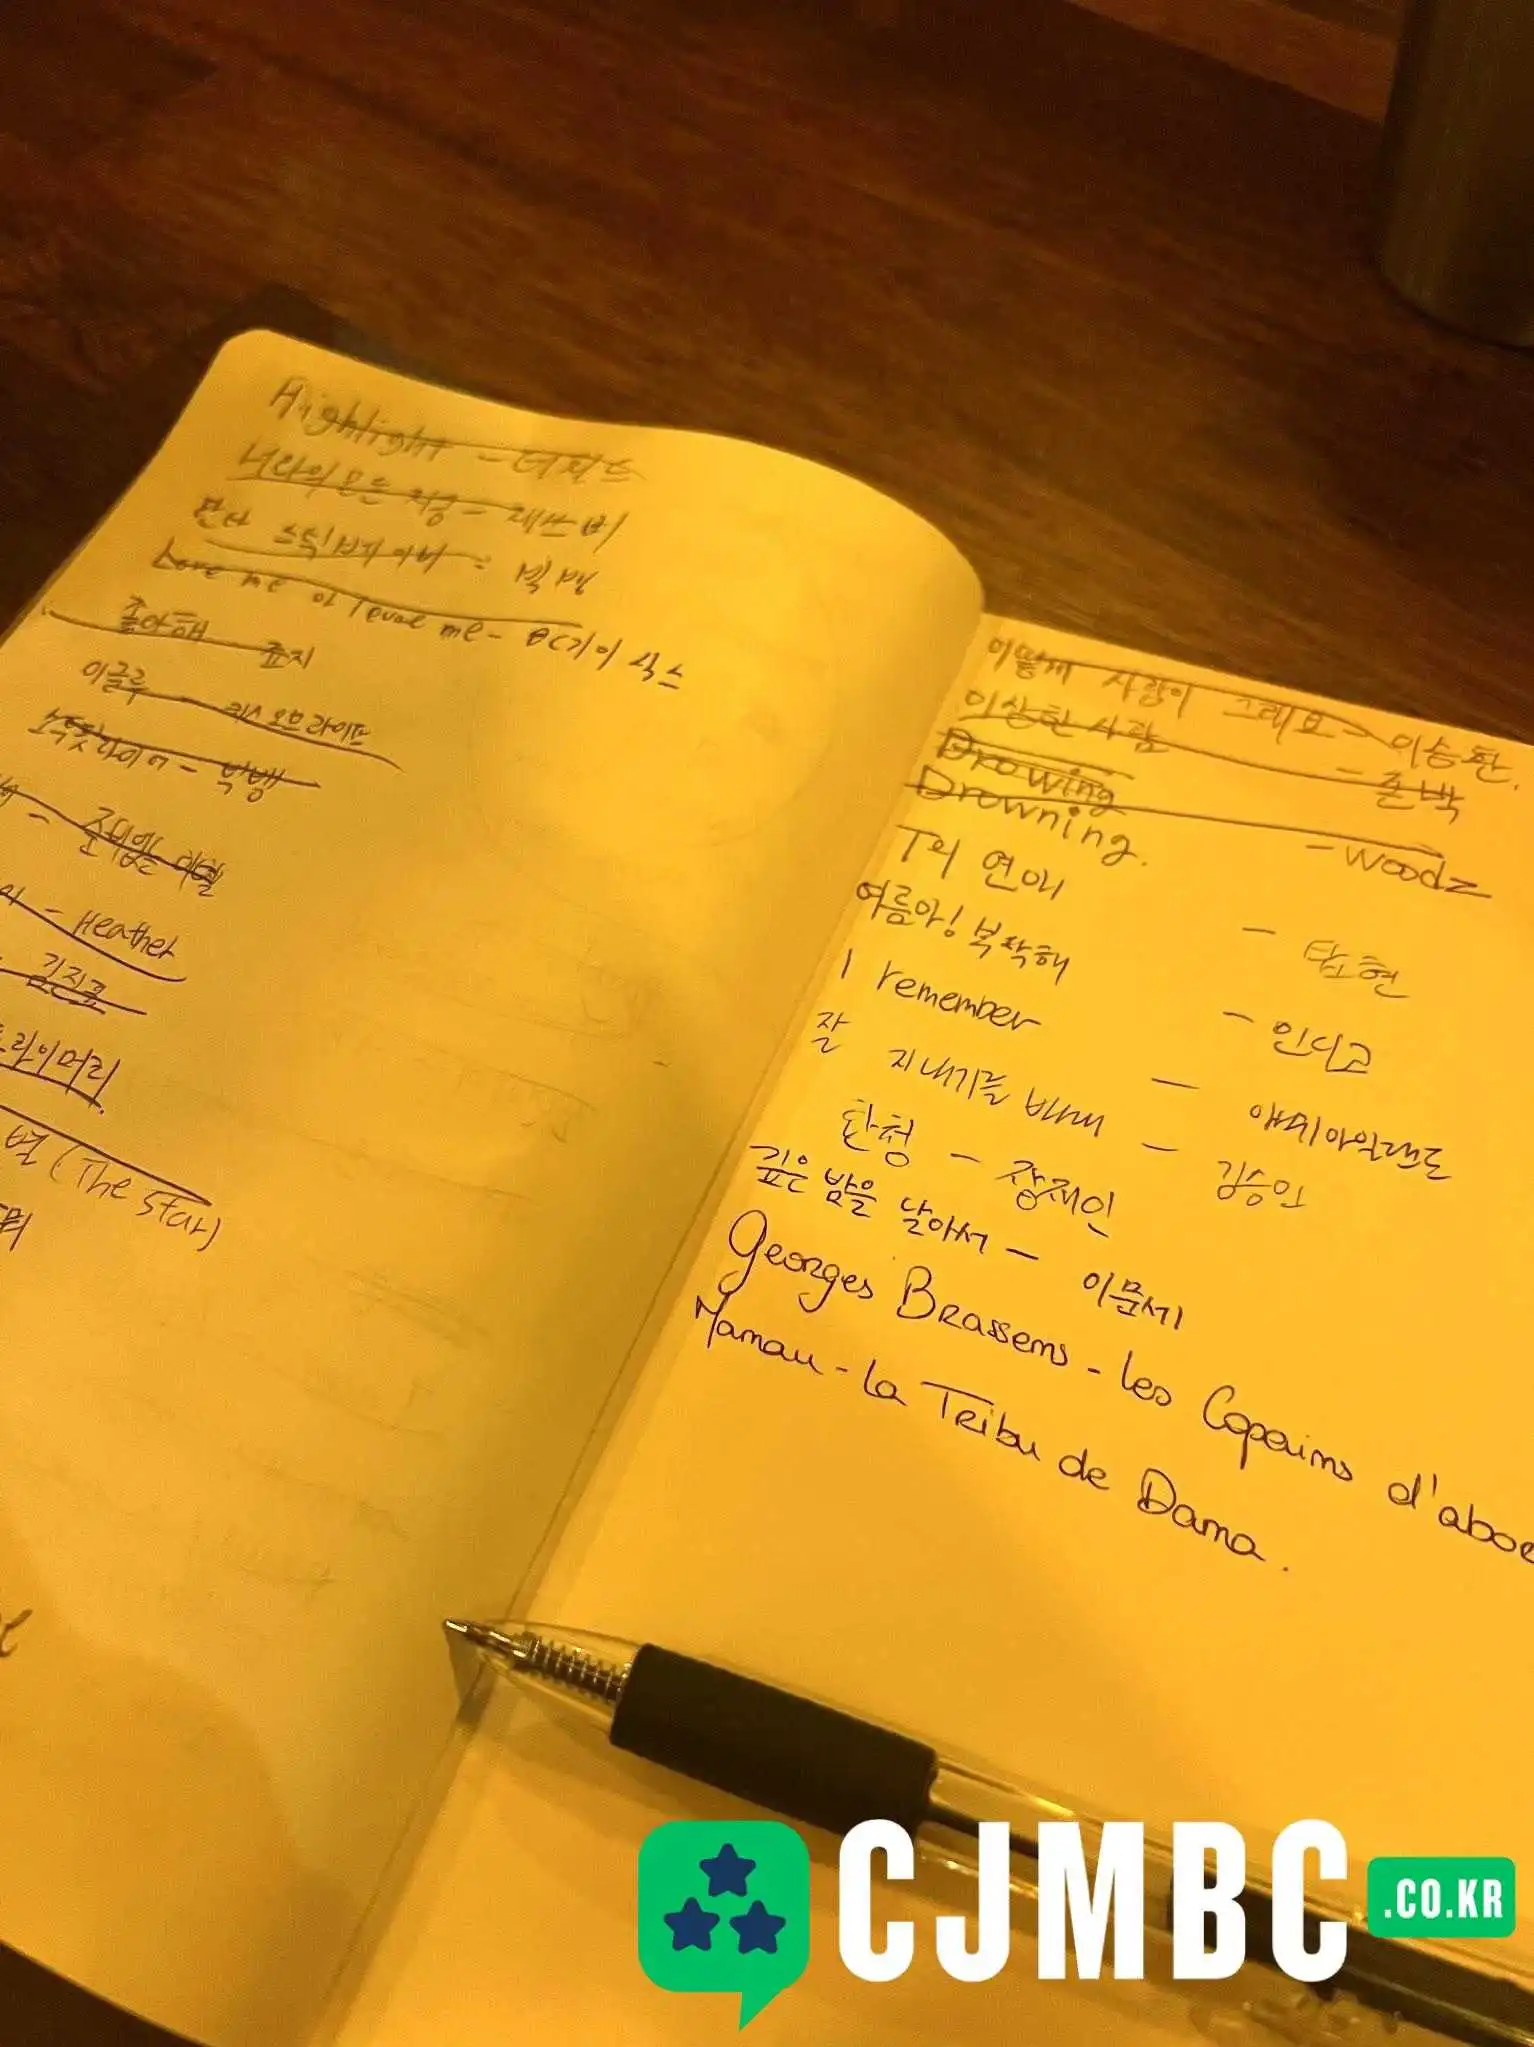 Highlight - 터치드
너라의 모든 지금 - 재쓰비
판타스틱 베이비 - 빅뱅
Love me or leave me - 데이식스
좋아해 - 요지
이글루 - 키스오브라이프
소듐라이어 - 빅뱅
- 준비없는 이별
- Heather
김진표
프라이머리.
별 (The star)
어떻게 사랑이 그래요 - 이승환.
이상한 사람 - 존박
Drowing
Drowning. - woodz
T의 연애 - 탑현
여름아! 부탁해 - 인디고
I remember - 애쉬아일랜드
잘 지내기를 바래 - 김승민
환청 - 장재인
깊은 밤을 날아서 - 이문세
Georges Brassens - les Copains d'abor
Manau - la Tribu de Dana.
CJMBC.CO.KR